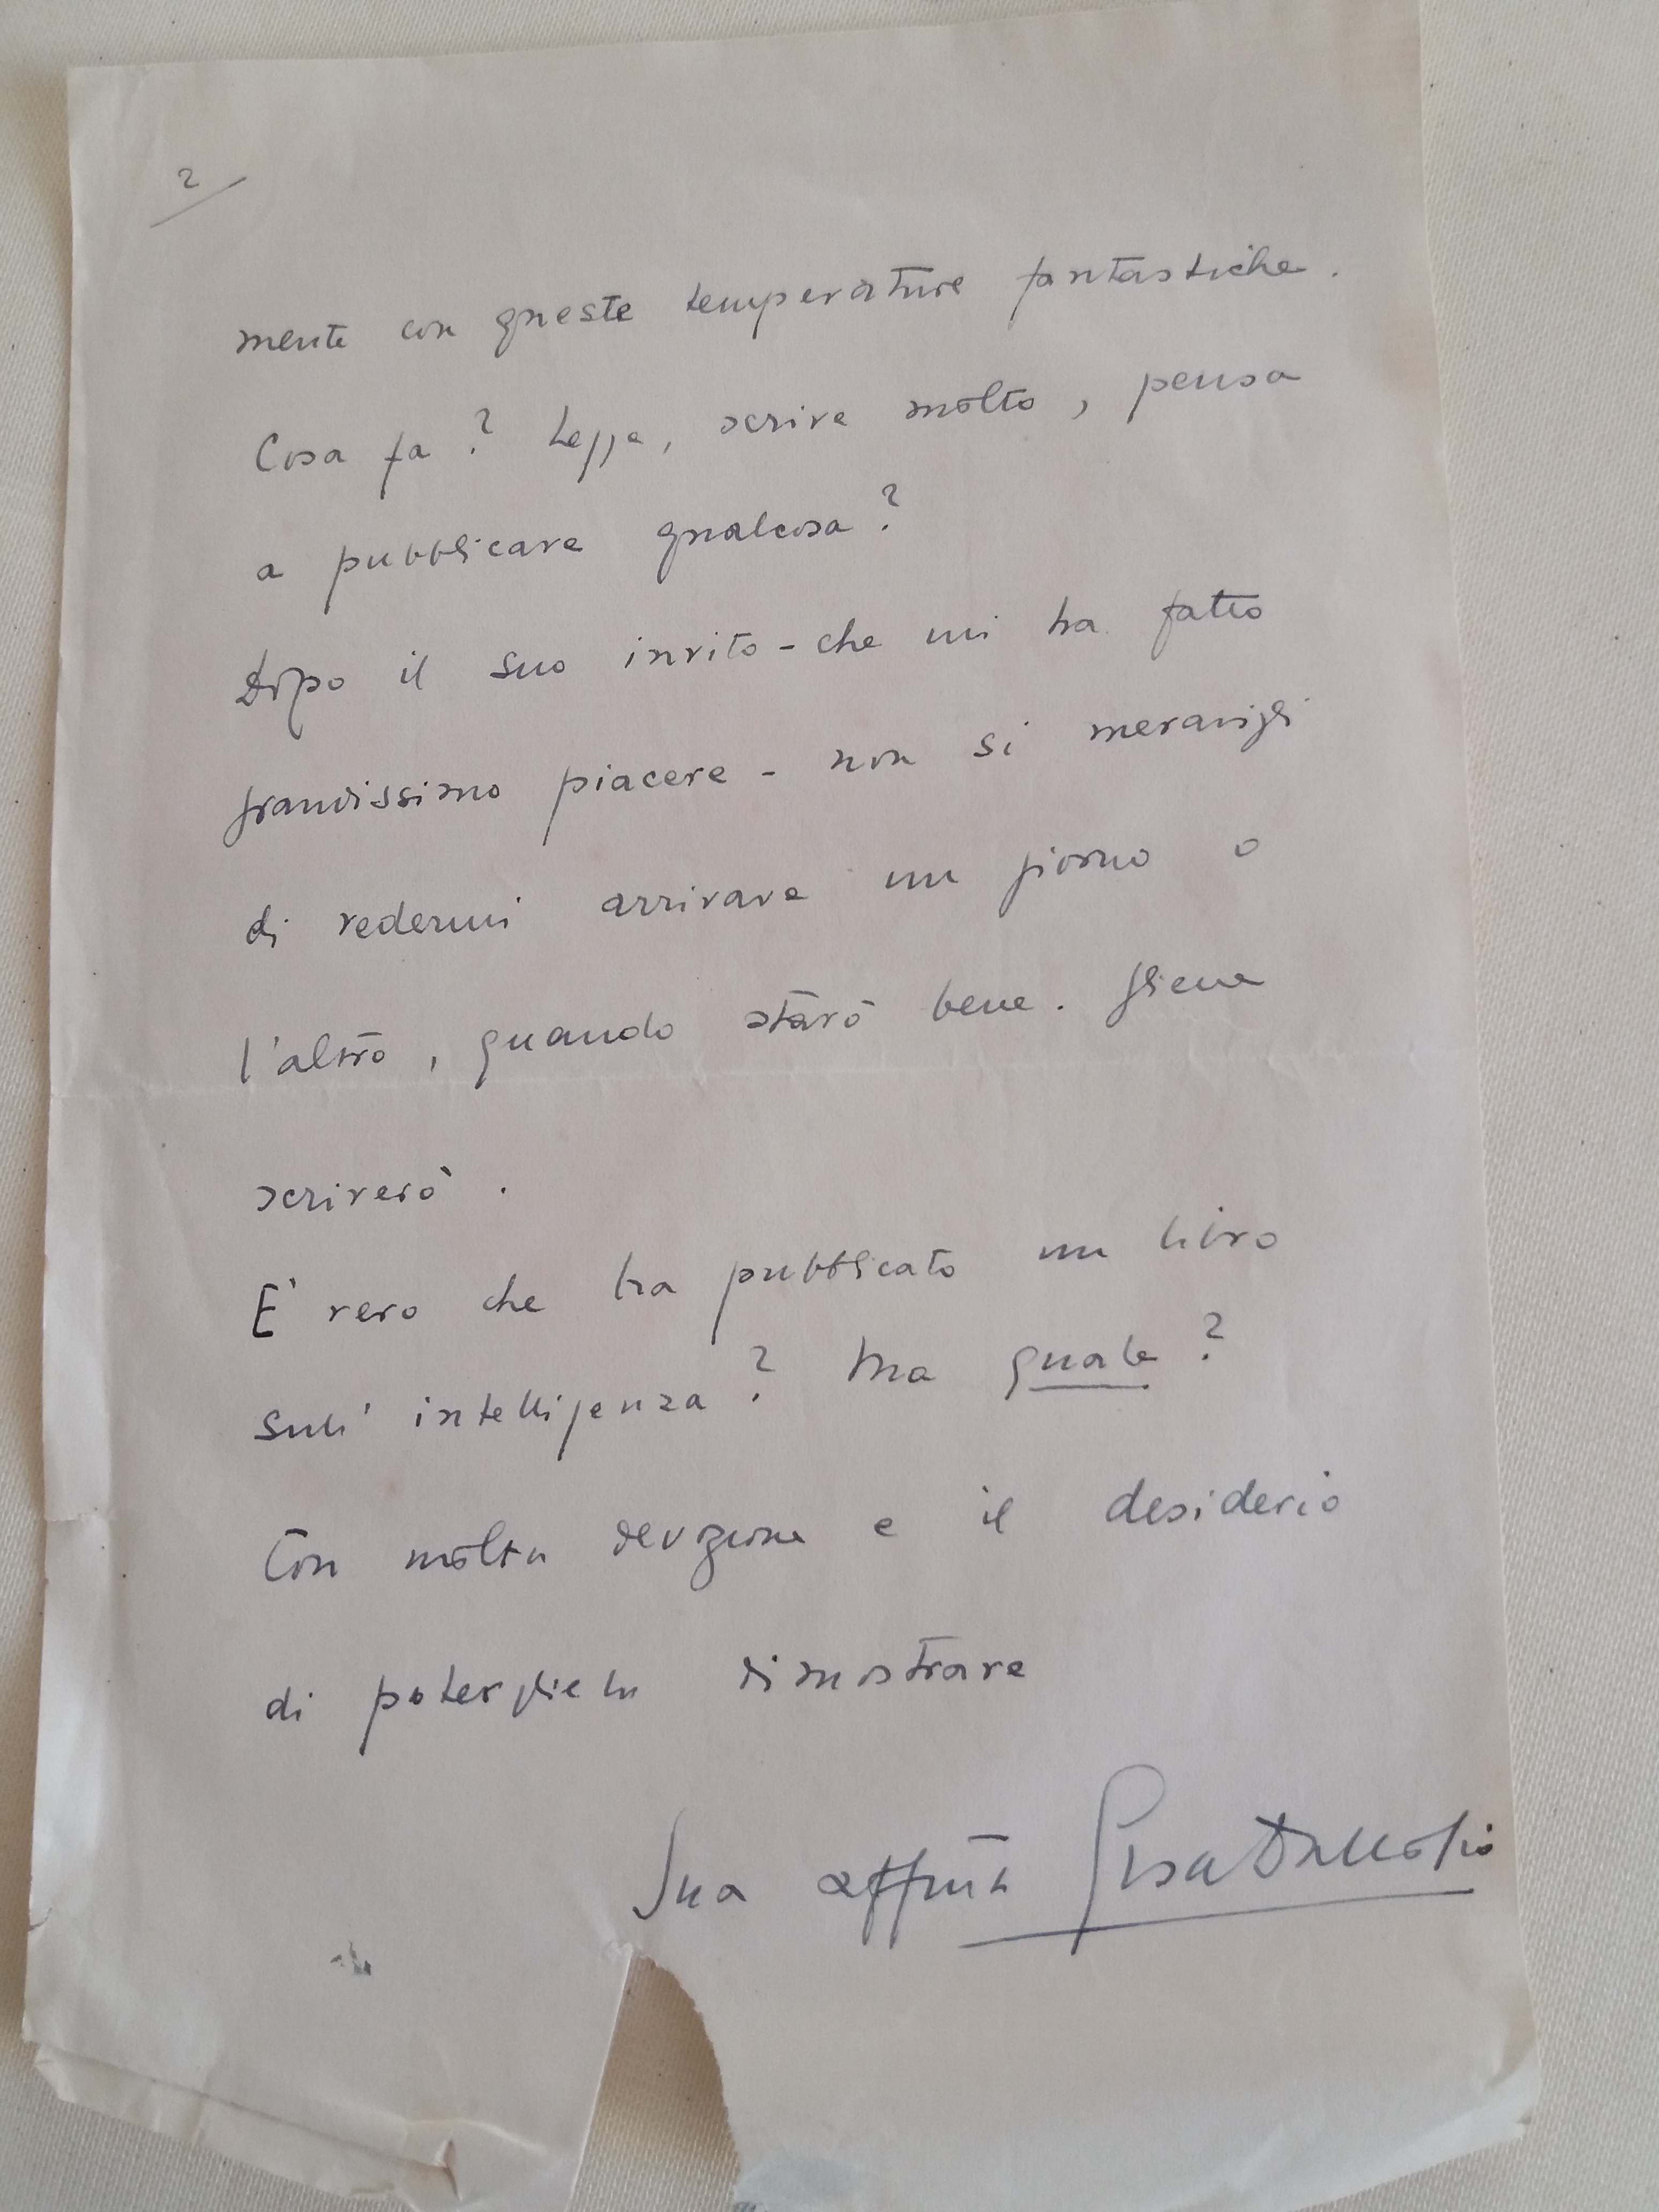 2
mente con queste temperature fantastiche.
Cosa fa? Legge, scrive molto, pensa
a pubblicare qualcosa?
Dopo il suo invito - che mi ha fatto
grandissimo piacere - non si meravigli
di vedermi arrivare un giorno o
l'altro, quando starò bene. Gliene
scriverò.
E' vero che ha pubblicato un libro
sull' intelligenza? Ma quale?
Con molta devozione e il desiderio
di poterglielo dimostrare
Sua affma